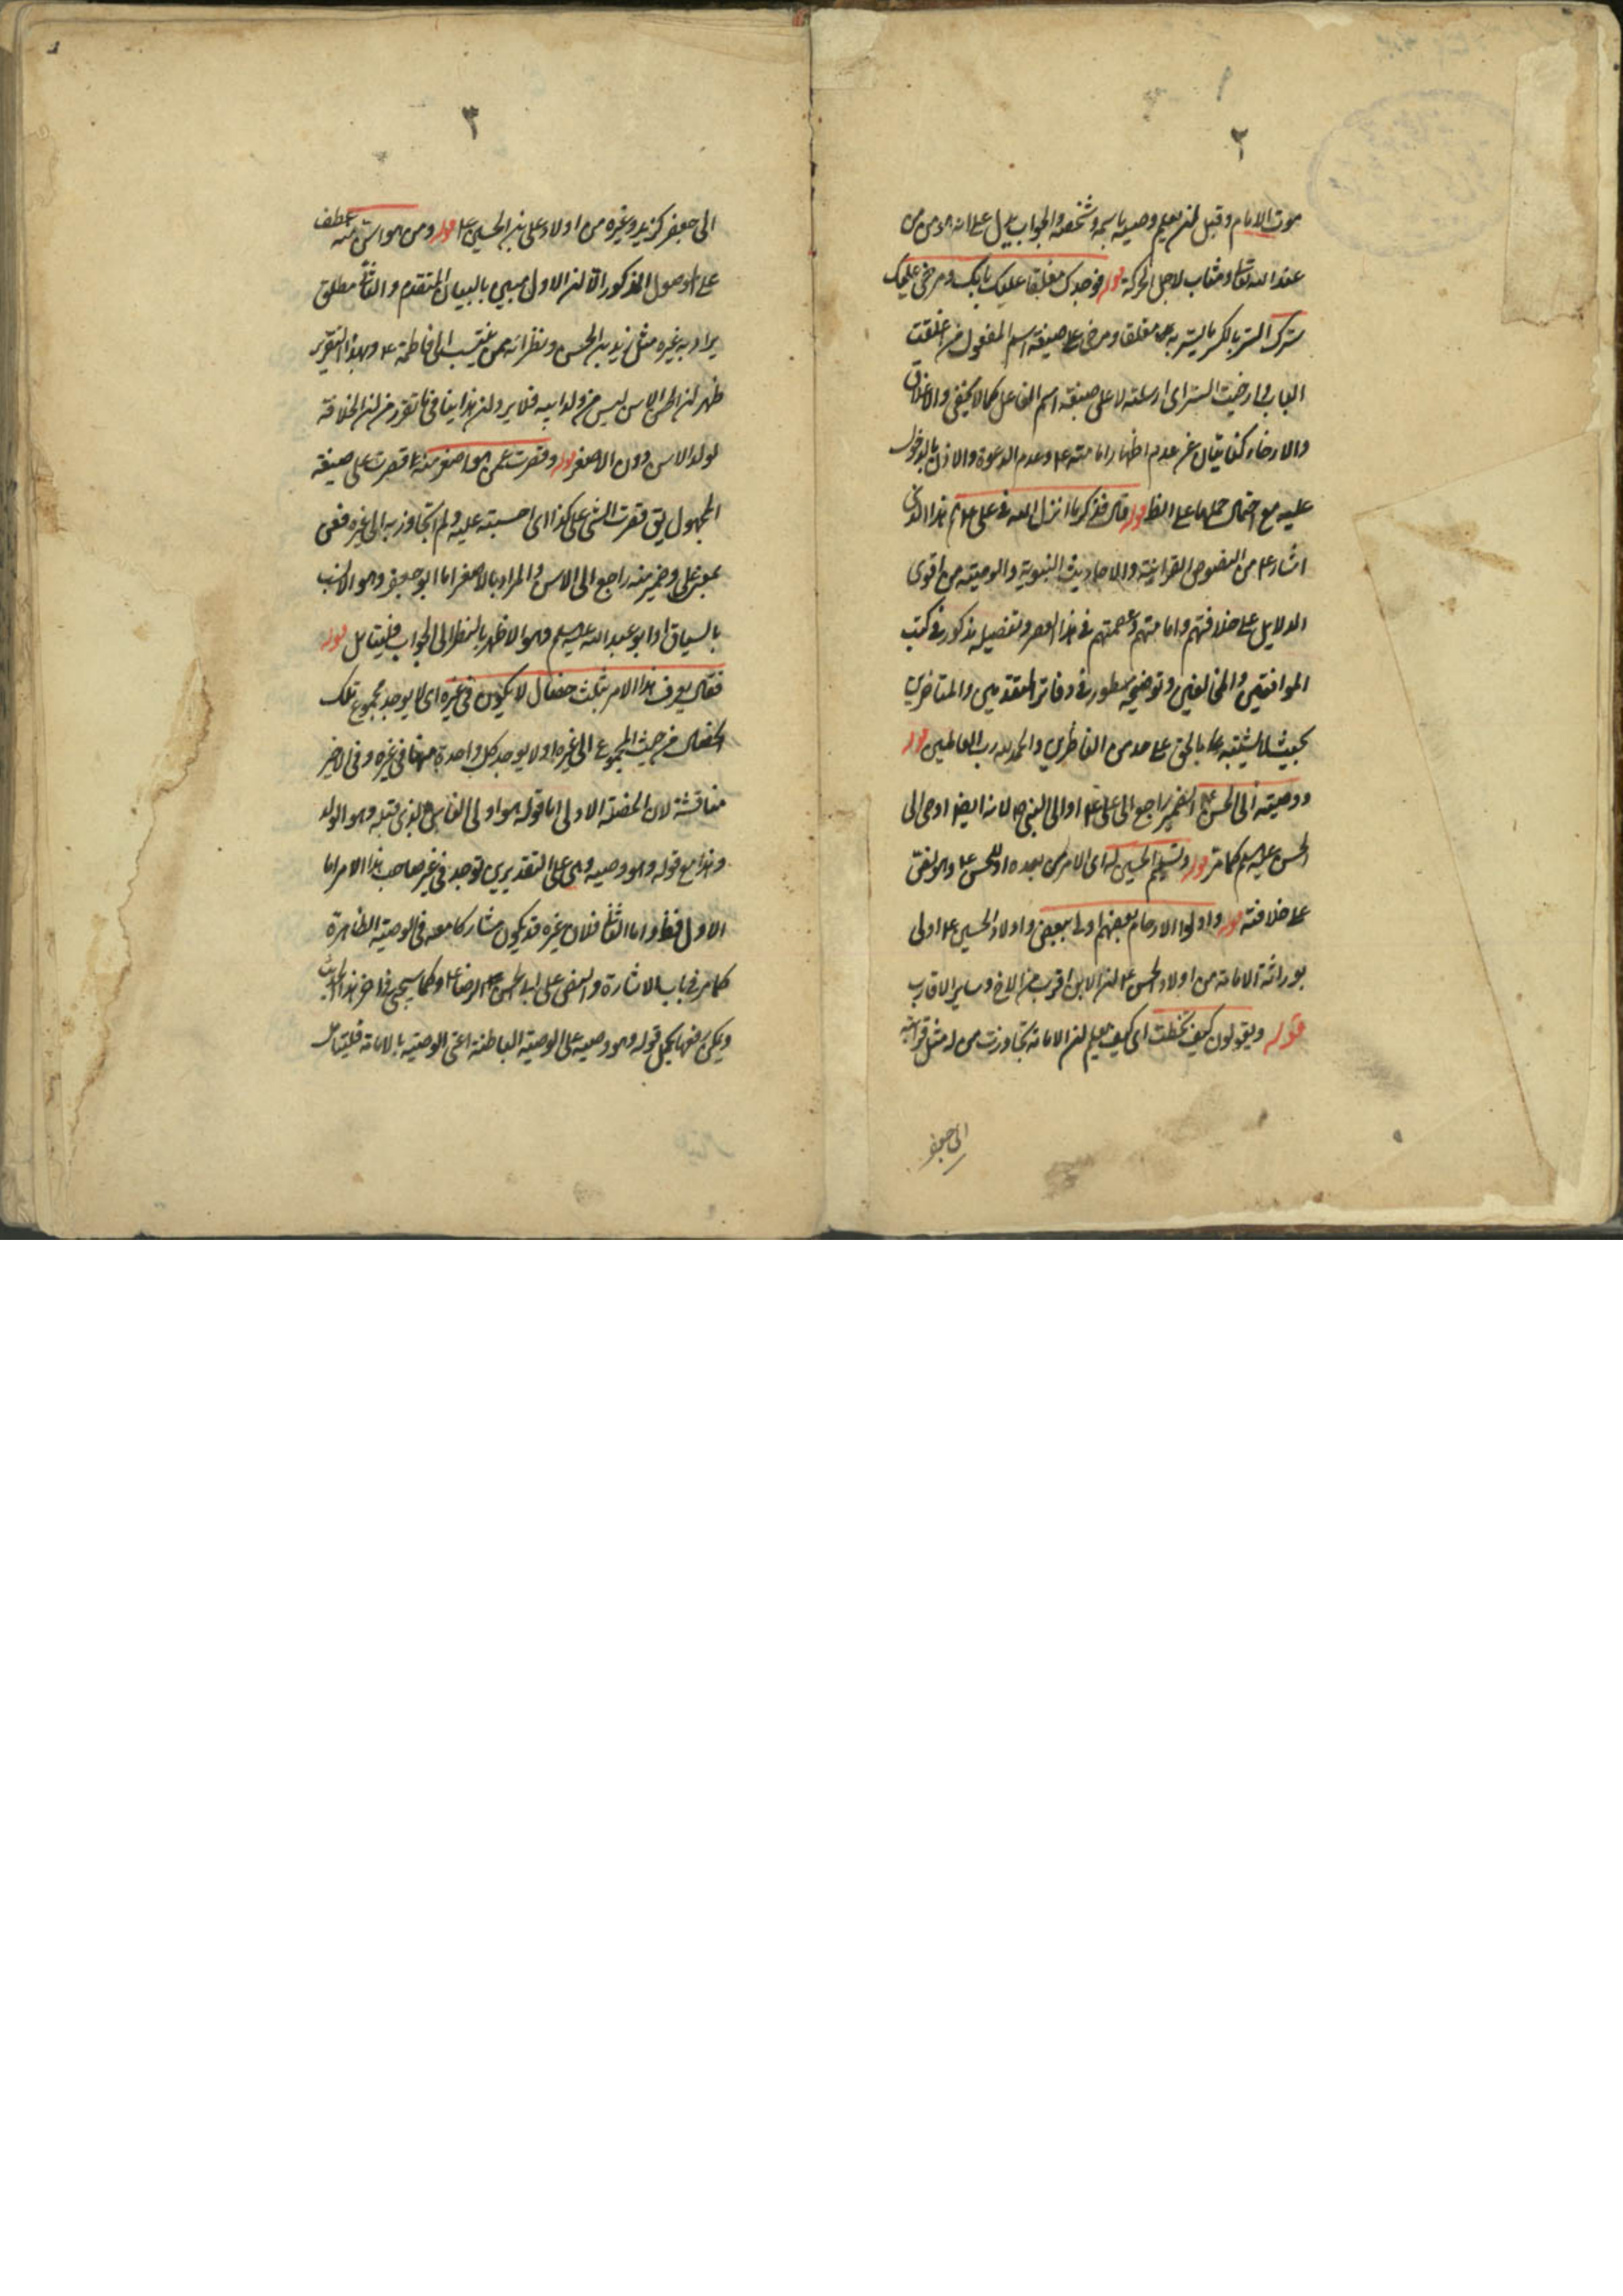 ٢
موت الامام وقبل ان يعلم وصيه باسمه وشخصه والجواب يدل على انه مؤمن
عند الله تعالى ومثاب لاجل الحركة قوله فوجدك مغلقا عليك بابك ومرخى عليك
سترك الستر بالكسر ما يستر به ومغلقا ومرخى على صيغة اسم المفعول من اغلقت
الباب وارخيت الستر اى ارسلته لا على صيغة اسم الفاعل كما لا يخفى والاغلاق
والارخاء كنايتان عن عدم اظهار امامته ع وعدم الدعوة والاذن بالدخول
عليه مع احتمال حملهما على الظ قوله قال فذكر ما انزل الله فى على ع هذا الذى
اشار ع من النصوص القرآنية والاحاديث النبوية والوصية من اقوى
الدلايل على خلافتهم وامامتهم وعصمتهم فى هذا العصر وتفصيله مذكور فى كتب
الموافقين والمخالفين وتوضيحه مسطور فى دفاتر المتقدمين والمتاخرين
بحيث لا يشتبه على الناظرين والحمد لله رب العالمين قوله
ووصيته الى الحسن ع الضمير راجع الى على ع او الى النبى ص لانه ايضا اوصى الى
الحسن عليه السلم كما مر قوله وتسليم الحسين له اى الامر من بعده او للحسن ع وهو نص
على خلافته قوله واولوا الارحام بعضهم اولى ببعض واولاد الحسين ع اولى
بوراثة الامامة من اولاد الحسن ع لان الابن اقرب من الاخ وساير الاقارب
قوله ويقولون كيف تخطت اى كيف يعلم ان الامامة تجاوزت من له مثل قرابته
الى جعفر
٣
الى جعفر كزيد وغيره من اولاد على بن الحسين ع قوله ومن هو اسن منه عطف
على الموصول المذكور الا ان الاولى مبين بالبيان المتقدم والثانى مطلق
يراد به غيره مثل زيد بن الحسن ونظرائه ممن ينتسب الى فاطمة ع وبهذا التقرير
ظهر ان الاسن ليس من ولد ابيه فلا يرد ان هذا ينافى ما تقرر من ان الخلافة
لولد الاسن دون الاصغر قوله وقصرت عمن هو اصغر منه قصرت على صيغة
المجهول يق قصرت الشئ على كذا اى احسبته عليه ولم اتجاوز به الى غيره فعن
بمعنى على وضمير منه راجع الى الاسن والمراد بالاصغر اما ابو جعفر وهو الانسب
بالسياق او ابو عبد الله عليه السلم وهو الاظهر بالنظر الى الجواب فليتامل قوله
فقال يعرف هذا الامر بثلث خصال لا يكون فى غيره اى لا يوجد مجموع تلك
الخصال من حيث المجموع الى غيره او لا يوجد كل واحدة منها فى غيره وفى الاخير
مناقشة لان الخصلة الاولى اما قوله هو اولى الناس بالذى قبله وهو الولد
وهذا مع قوله وهو وصيه وهى على التقديرين توجد فى غير صاحب هذا الامر اما
الاول فظ واما الثانى فلان غيره قد يكون مشاركا معه فى الوصية الظاهرة
كما مر فى باب الاشارة والنص على ابى الحسن الرضا ع وكما سيجئ فى اخر هذا الحديث
ويمكن رفعها بحمل قوله وهو وصيه على الوصية الباطنة اعنى الوصية بالامامة فليتامل